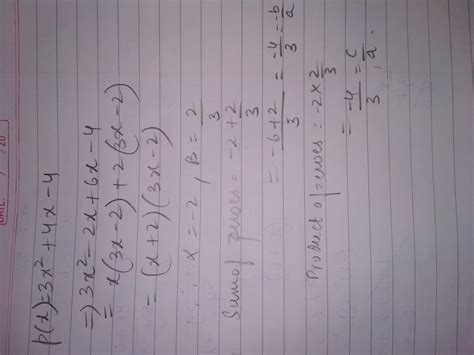 DATE: / /20
p(x)=3x²+4x-4
⇒) 3x²-2x+6x-4
= x(3x-2)+2(3x-2)
= (x+2)(3x-2)
∴ x=-2, β=2/3
Sum of zeroes = -2+2/3
= -6+2/3 = -4/3 = -b/a
Product of zeroes: -2×2/3
= -4/3 = c/a.